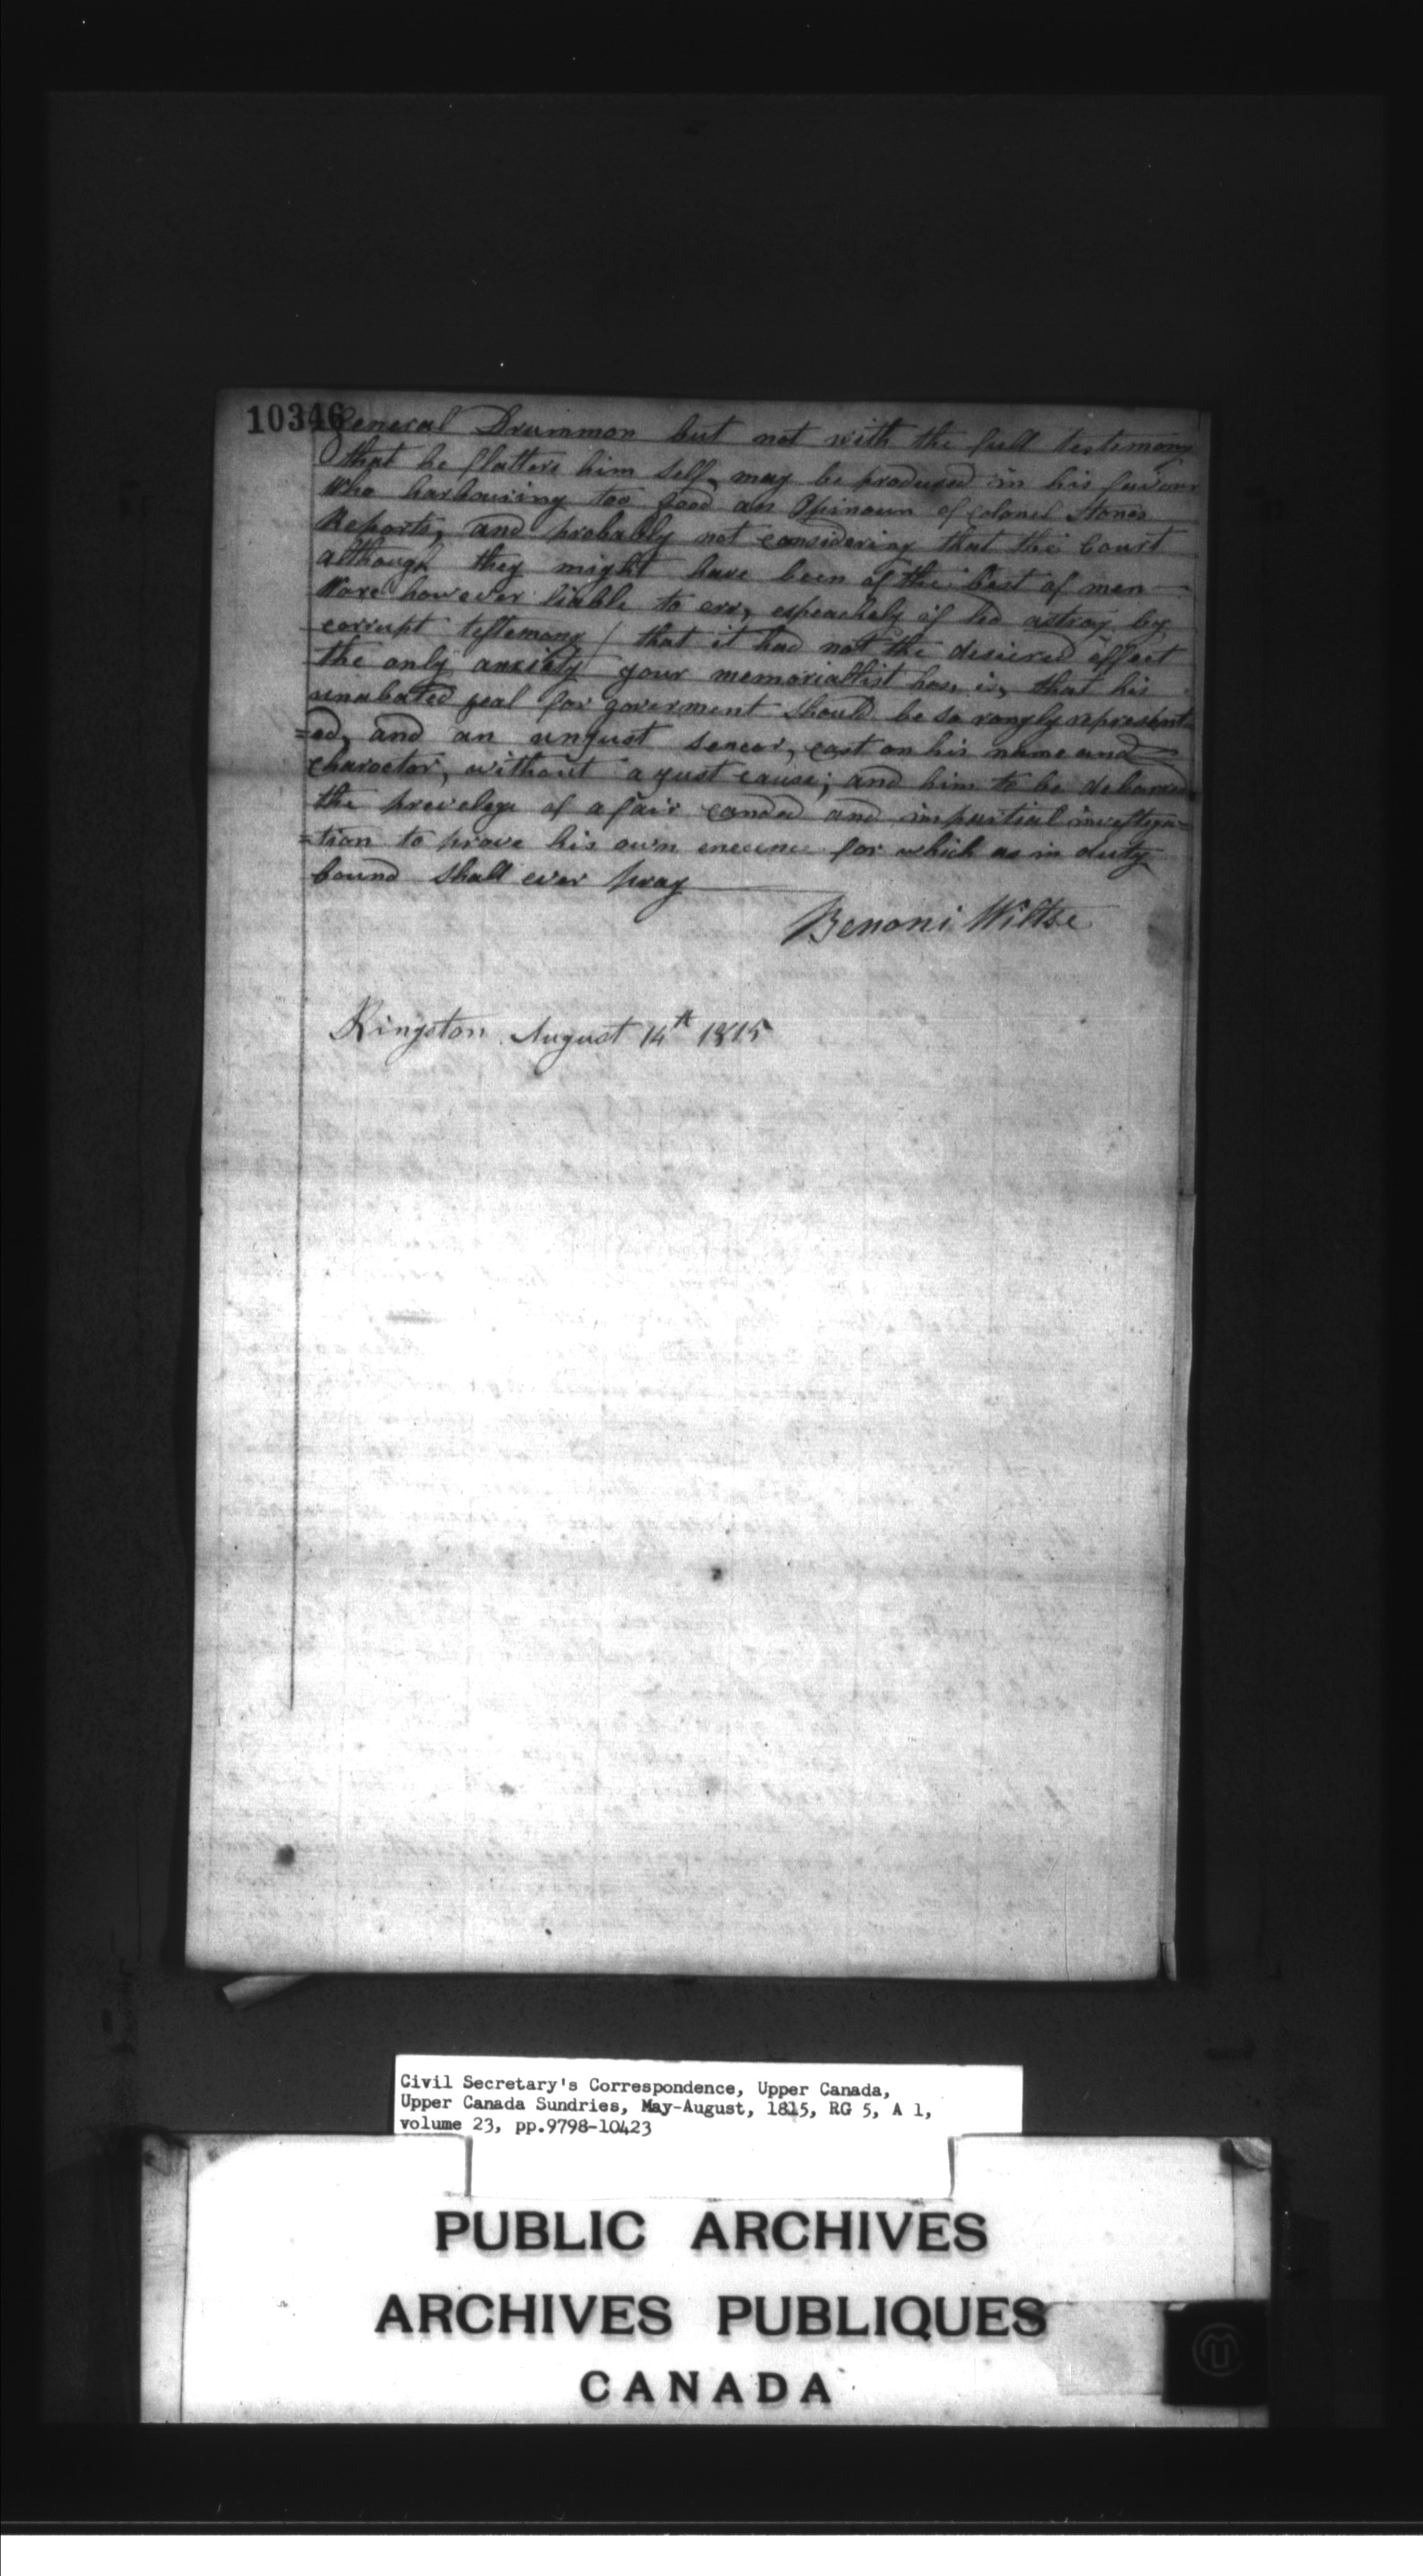 10346
General Drummon but not with the full testemony
that he flatters him self, may be produced in his favour
Who harbouring too good an Opinoun of Colonel Stones
Reports, and probably not considering that the Court
although they might have been of the best of men
Ware however liable to err, espeachely if led astray by
corrupt testemony / that it had not the desiered effect
the only anxiety your memoriallist has, is, that his
unabated zeal for goverment should be so rongly represent=
=ed, and an unjust sencar, cast on his name and
charoctor, without a just cause; and him to be debarred
the prevelege of a fair canded and impartial investiga=
=tion to prove his own enecence for which as in duty
bound shall ever pray
Benoni Wiltse
Kingston August 14th 1815
Civil Secretary's Correspondence, Upper Canada,
Upper Canada Sundries, May-August, 1815, RG 5, A 1,
volume 23, pp.9798-10423
PUBLIC ARCHIVES
ARCHIVES PUBLIQUES
CANADA